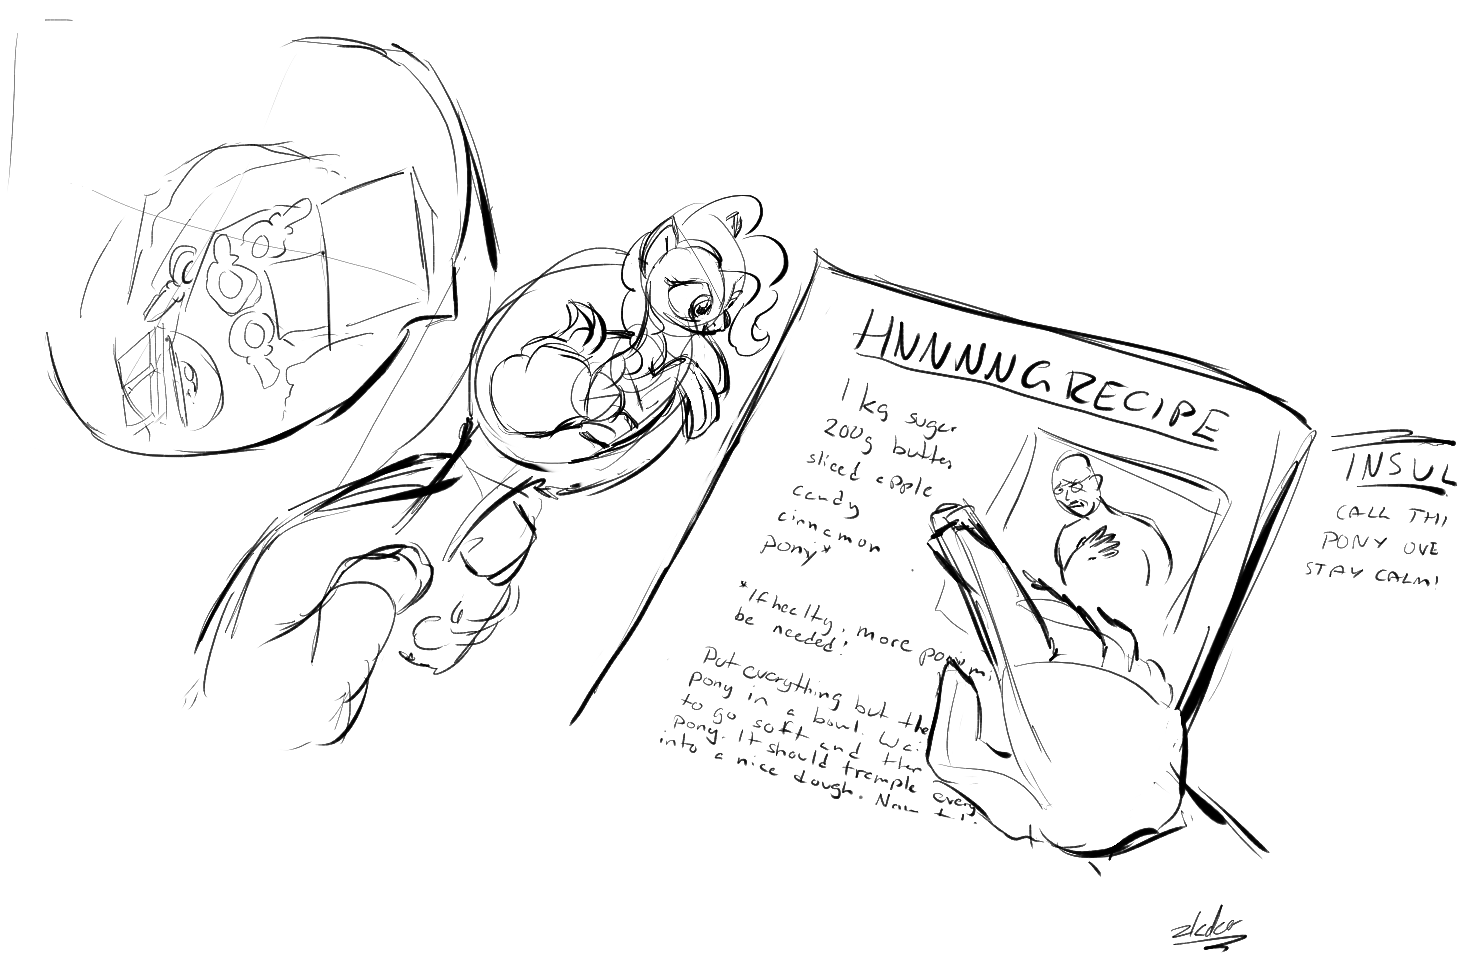 HNNNNG RECIPE
1 kg sugar
200g butter
sliced apple
candy
cinnamon
pony*
*If healty, more pony mi
be needed!
Put everything but the
pony in a bowl. Wai
to go soft and then
pony. It should trample every
into a nice dough. Now
INSUL
CALL THI
PONY OVE
STAY CALM!